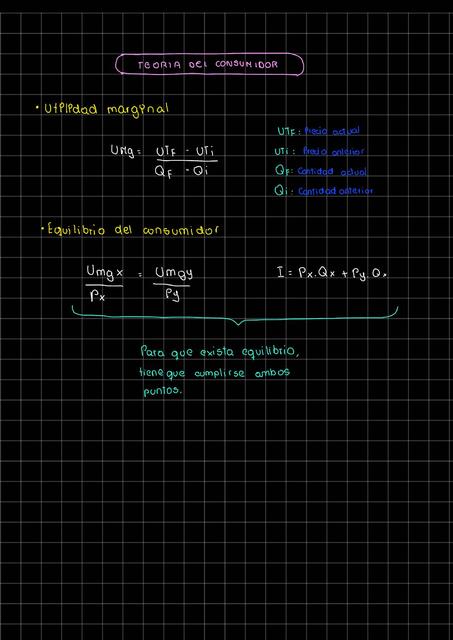 TEORIA DEL CONSUMIDOR
• Utilidad marginal
UMg = UTF - UTi / QF - Qi
UTF: Precio actual
UTi: Precio anterior
QF: Cantidad actual
Qi: Cantidad anterior
• Equilibrio del consumidor
Umgx / Px = Umgy / Py
I = Px.Qx + Py.Qx
Para que exista equilibrio,
tiene que cumplirse ambos
puntos.